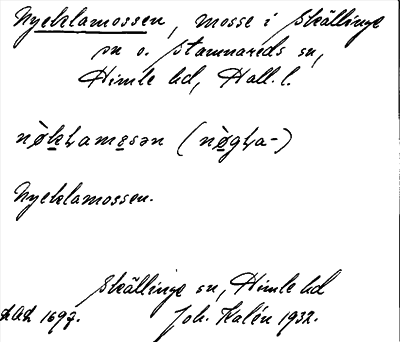 Nycklamossen, mosse i Skällinge
sn o. Stamnareds sn,
Himle hd, Hall. l.
Nycklamossen.
Skällinge sn, Himle hd
1697. Joh. Kalén 1932.